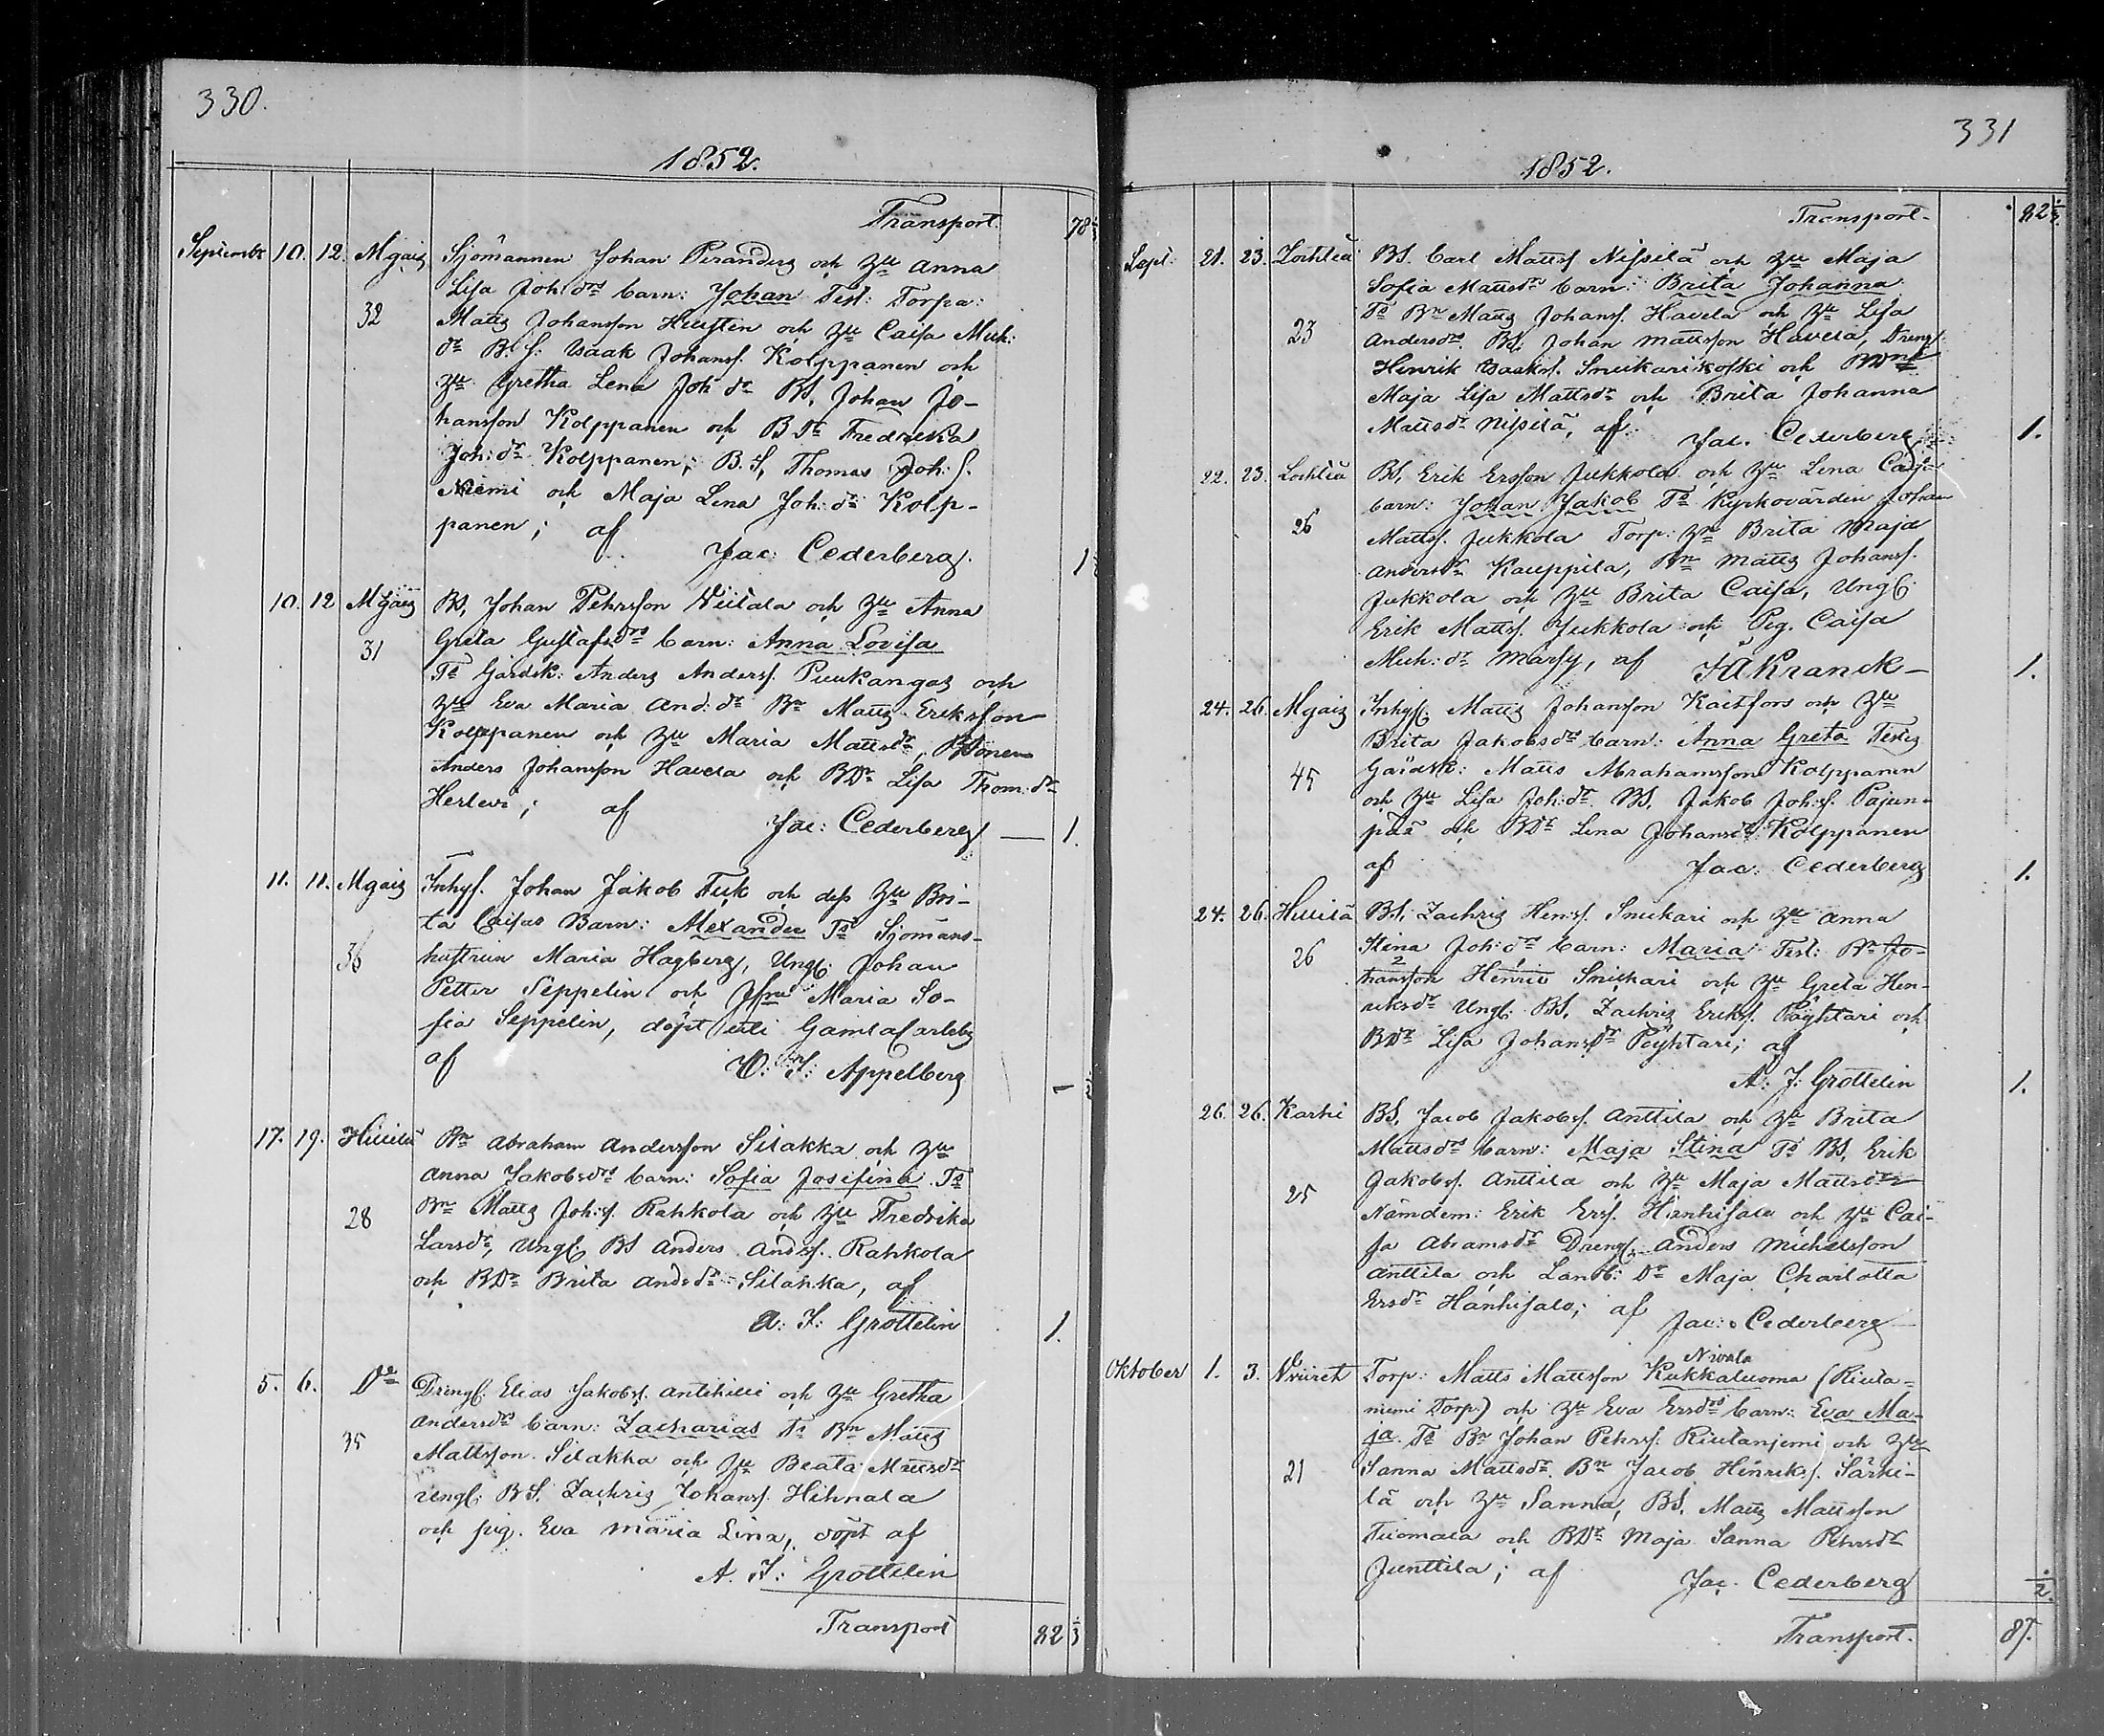 330.
1852.
Transport. 78
September 10. 12. Mgaiz Sjömannen Johan Peranderz och Hu Anna
Lisa Joh:drs barn: Johan Test: Torpa:
32 Matts Johansson Huusten och Hu Caisa Mich:
dr B.S: Isaak Johanss. Kolppanen och
Hu Gretha Lena Joh:dr BS, Johan Jo-
hansson Kolppanen och B.Dr Fredrika
Joh:dr Kolppanen; B.S, Thomas Joh:s.
Niemi och Maja Lena Joh:dr Kolp-
panen; af
Jac: Cederberg. 1
10. 12 Mgaiz BS, Johan Pehrsson Viitala och Hu Anna
31 Greta Gustafsdrs barn: Anna Lovisa
Ts Gårdsk: Anders Anderss. Puukangas och
Hu Eva Maria And:dr Bn Matts Eriksson
Kolppanen och Hu Maria Mattsdr, BSonen
Anders Johansson Havela och BDr Lisa Thom:dr
Herlevi; af
Jac: Cederberg — 1.
11. 11. Mgaiz Inhys. Johan Jakob Tusk och dess Hu Bri-
ta Caisas Barn: Alexander Ts Sjömans-
36 hustrun Maria Hagberg, Ungl: Johan
Petter Seppelin och Jfru Maria So-
fia Seppelin, döpt uti GamlaCarleby
af
O: F: Appelberg
17. 19. Hillilä Bn Abraham Andersson Silakka och Hu
Anna Jakobsdrs barn: Sofia Josefina Ts
28 Bn Matts Joh:s. Rahkola och Hu Fredrika
Larsdr, Ungl. BS Anders Andrs. Rahkola
och BDr Brita Andrsdr Silakka, af
A: F: Grottelin 1.
5. 6. Do Drengl. Elias Jakobss. Antihilli och Hu Gretha
Andersdrs barn: Zacharias Ts Bn Matts
35 Mattsson Silakka och Hu Beata Mattsdr
Ungl. BS. Zachriz Johanss. Hihnala
och pig. Eva Maria Lina, döpt af
A. F: Grottelin
Transport 82 1/3
331
1852.
Transport. 82
Sept: 21. 23. Lochteå BS. Carl Mattss Nissilä och Hu Maja
Sofia Mattsdrs barn: Brita Johanna
Ts Bn Matts Johanss. Havela och Hu Lisa
23 Andersdr, BS, Johan Mattsson Havela, Drengl
Henrik Isakss. Snikarikoski och BDne
Maja Lisa Mattsdr och Brita Johanna
Mattsdr Nissilä, af Jac. Cederberg 1.
22. 23. Lochteå BS, Erik Ersson Jukkola och Hu Lena Caisas
barn: Johan Jakob Ts Kyrkovärden Johan
26 Mattss. Jukkola Torp: Hu Brita Maja
Andersdr Kauppila, Bn Matts Johanss.
Jukkola och Hu Brita Caisa, Ungl.
Erik Mattss. Jukkola och Pig. Caisa
Mich:dr Marsy, af FAKranck — 1.
24. 26. Mgaiz Inhys. Matts Johansson Kaitfors och Hu
Brita Jakobsdrs barn: Anna Greta Testes
45 Gårdsk: Matts Abrahamsson Kolppanen
och Hu Lisa Joh:dr BS. Jakob Joh:s. Pajun-
pää och BDr Lena Johansdr Kolppanen
af Jac: Cederberg 1.
24. 26. Hillilä BS, Zachriz Hen:s. Snickari och Hu Anna
26 Stina Joh:drs barn: Maria Test: Bn Jo-
hansson Henric Snickari och Hu Greta Hen-
riksdr Ungl. BS, Zachriz Erikss. Pöyhtari och
BDr Lisa Johansdr Pöyhtari; af
A: F: Grottelin 1.
26. 26. Karhi BS, Jacob Jakobss. Anttila och Hu Brita
Mattsdrs barn: Maja Stina Ts BS, Erik
25 Jakobss. Anttila och Hu Maja Mattsdr
Nämdem: Erik Erss. Hanhisalo och Hu Cai-
sa Abramsdr Drengl. Anders Michelsson
Anttila och Landb: Dr Maja Charlotta
Ersdr Hanhisalo; af Jac: Cederberg
Oktober 1. 3. Torp: Matts Mattsson Kukkaluoma Nivala (Riuta-
niemi Torp) och Hu Eva Ersdrs barn: Eva Ma-
ja. Ts Bn Johan Pehrss. Riutaniemi och Hu
21 Sanna Mattsdr. Bn Jacob Henrikss. Särki-
lä och Hu Sanna, BS. Matts Mattsson
Tuomala och BDr Maja Sanna Pehrsdr
Junttila; af Jac. Cederberg
Transport. 87.